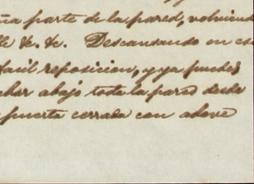 ña parte de la pared, volviendo
&c. &c. Descansando en esa
fácil reposicion, y ya puedes
echar abajo toda la pared desde
puerta cerrada con adove